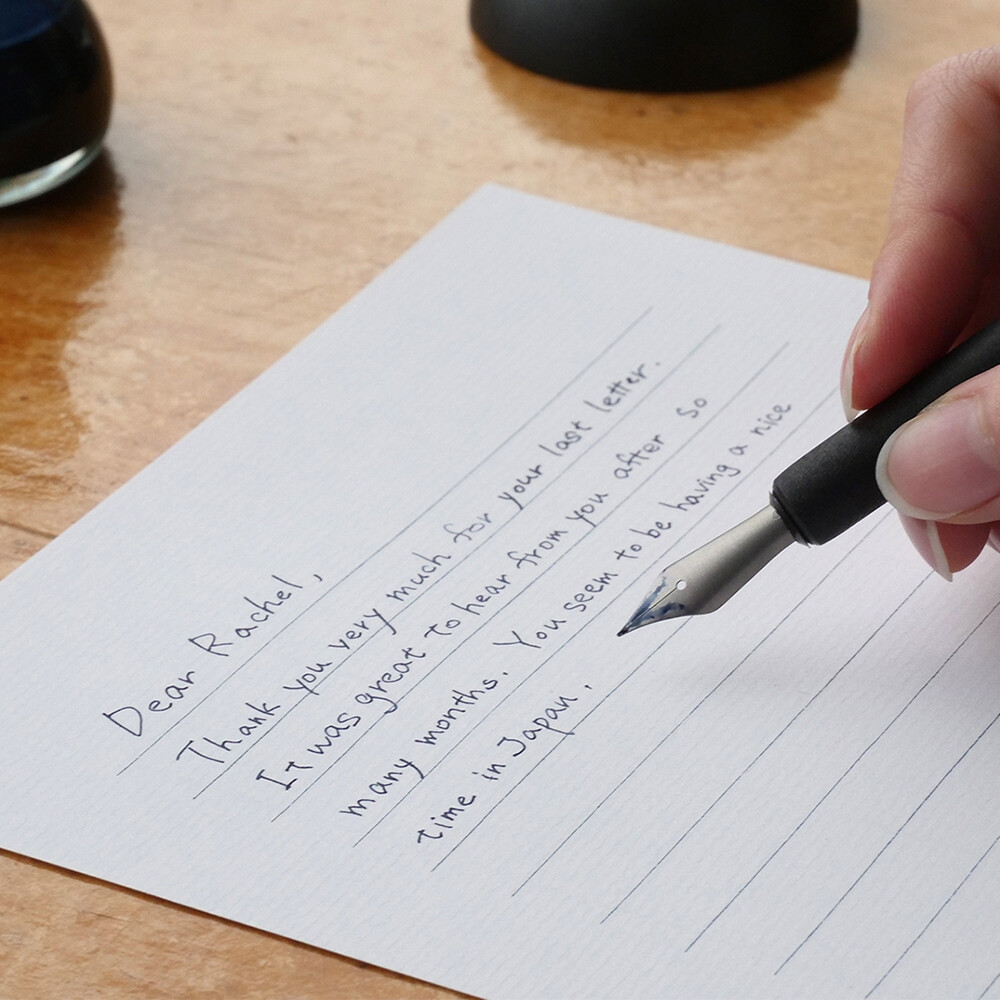 Dear Rachel,
Thank you very much for your last letter.
It was great to hear from you after so
many months. You seem to be having a nice
time in Japan.